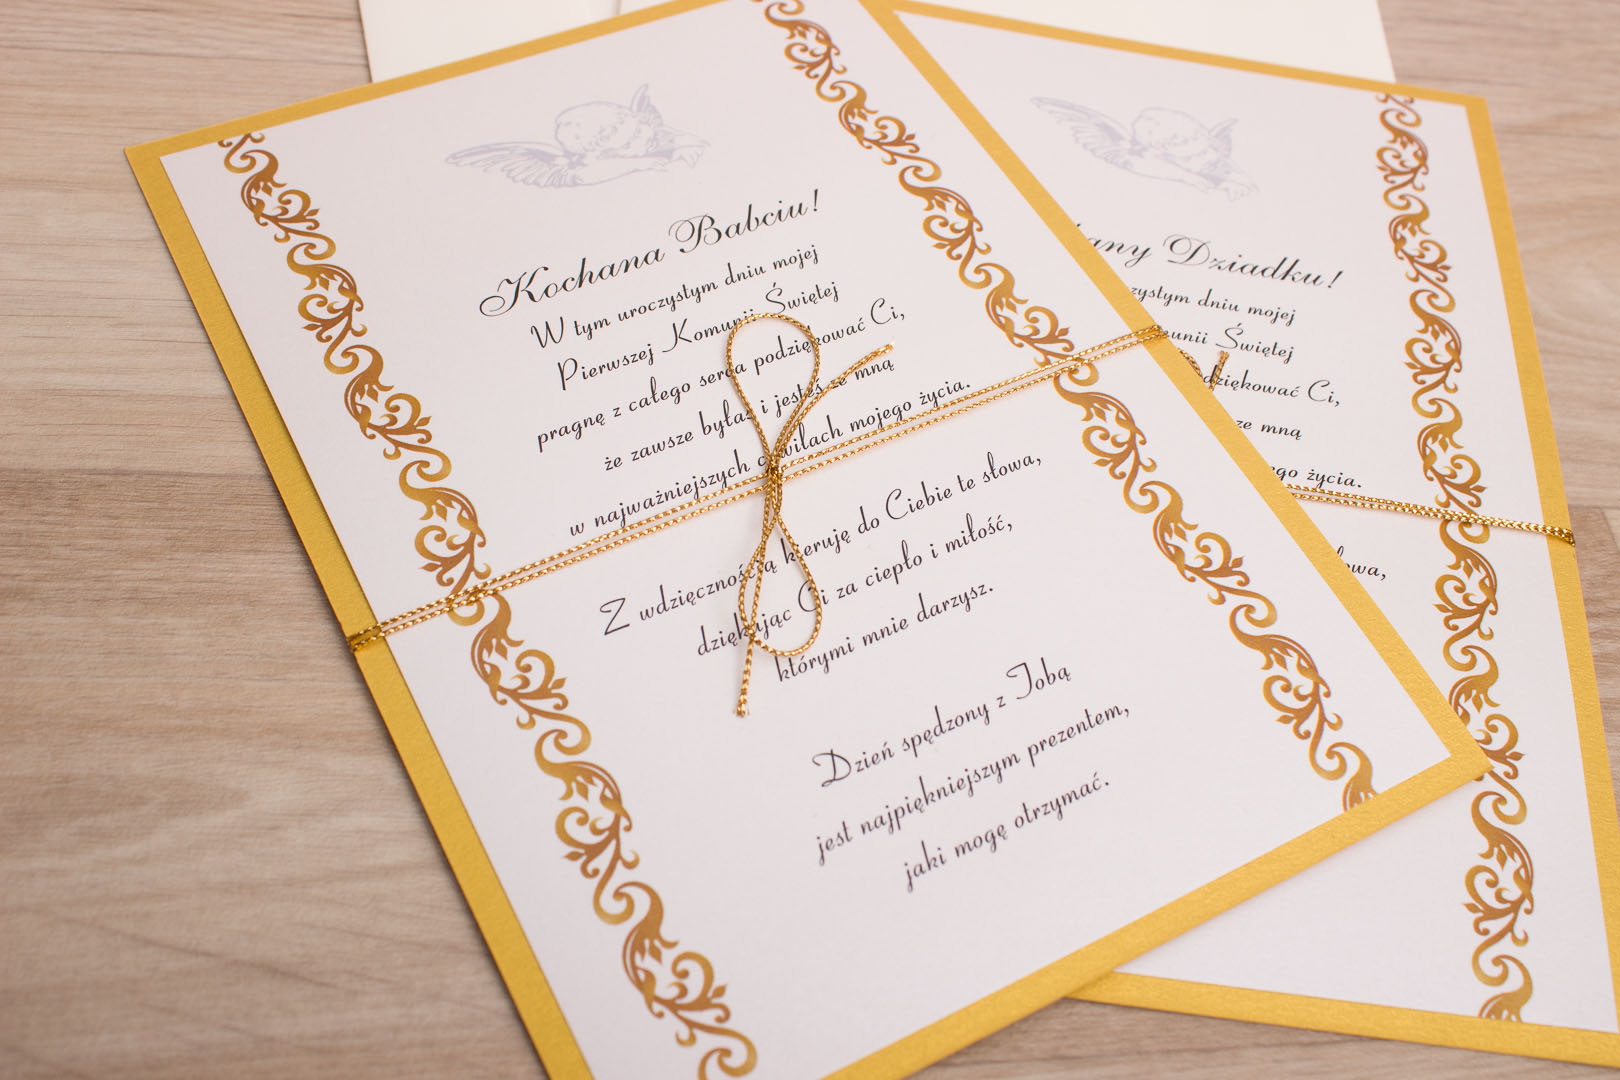 Kochana Babciu!
W tym uroczystym dniu mojej
Pierwszej Komunii Świętej
pragnę z całego serca podziękować Ci,
że zawsze byłaś i jesteś ze mną
w najważniejszych chwilach mojego życia.
Z wdzięcznością kieruję do Ciebie te słowa,
dziękując Ci za ciepło i miłość,
którymi mnie darzysz.
Dzień spędzony z Tobą
jest najpiękniejszym prezentem,
jaki mogę otrzymać.
any Dziadku!
zystym dniu mojej
unii Świętej
dziękować Ci,
ze mną
ego życia.
owa,